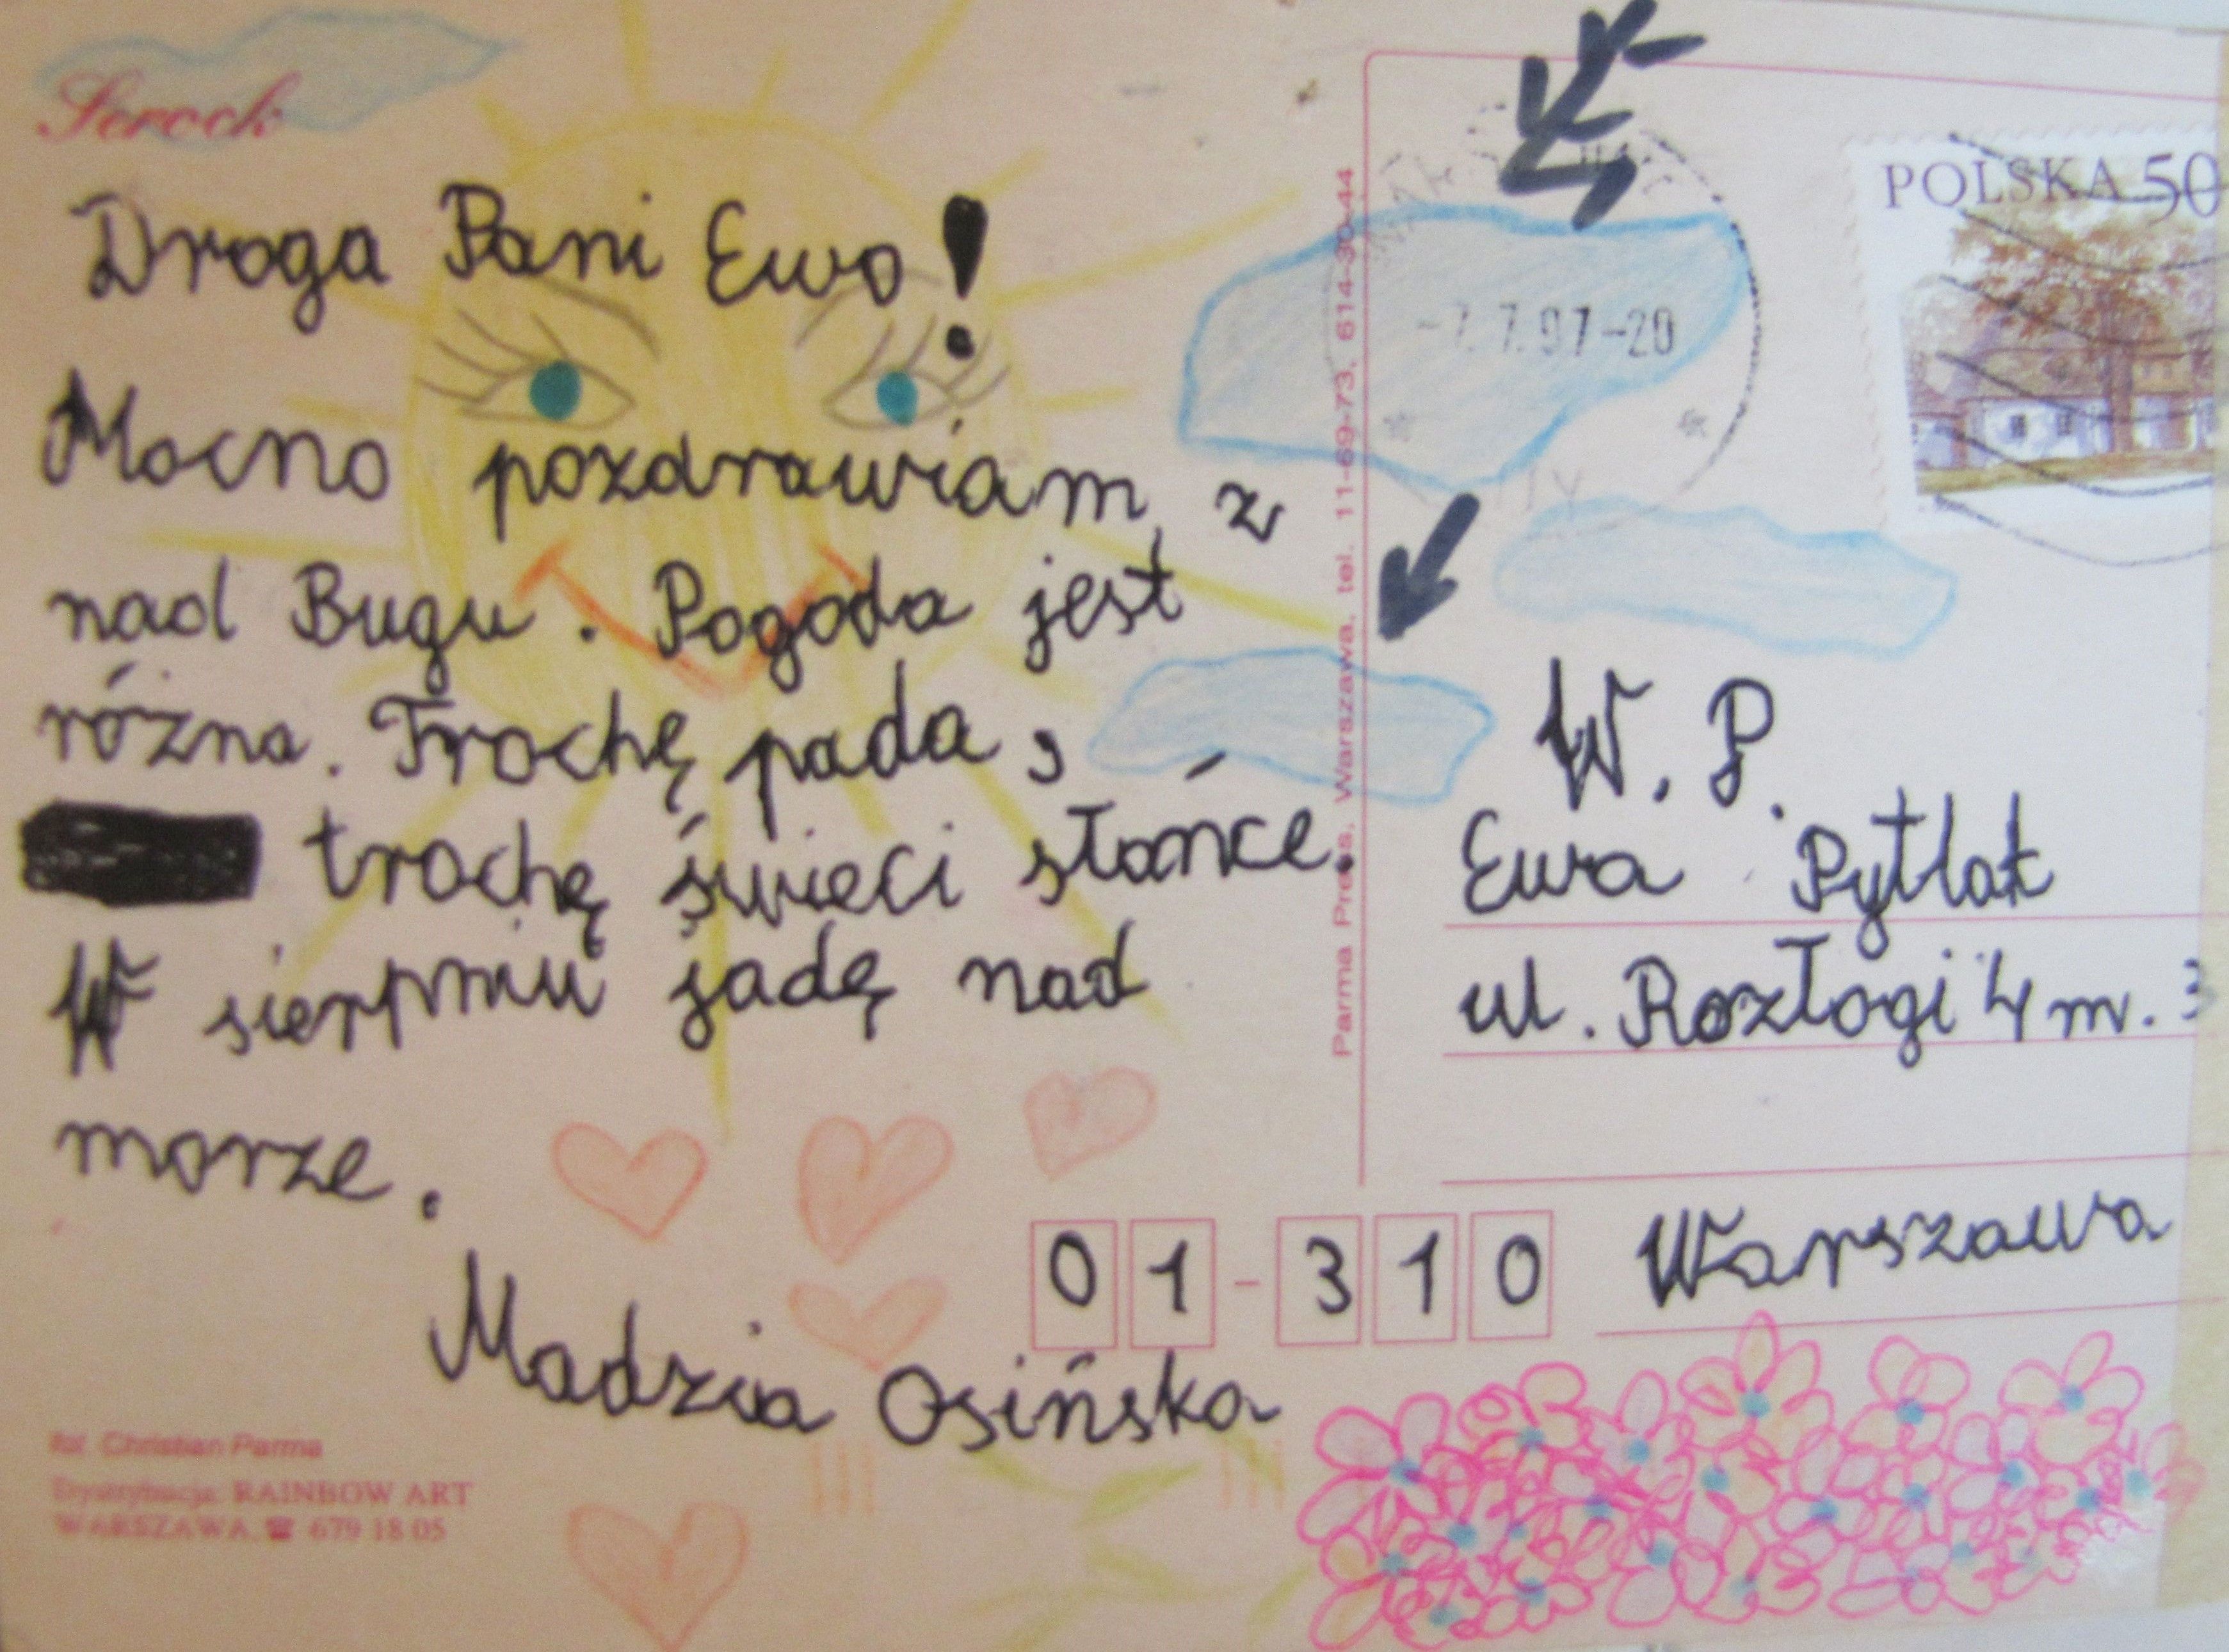 Serock
Droga Pani Ewo!
Mocno pozdrawiam z
nad Bugu. Pogoda jest
różna. Trochę pada,
trochę świeci słońce.
W sierpniu jadę nad
morze.
Madzia Osińska
fot. Christian Parma
Dystrybucja: RAINBOW ART
WARSZAWA, ☎ 679 18 05
Parma Press, Warszawa, tel. 11-69-73, 614-30-44
-7.7.97-20
POLSKA 50
W. P.
Ewa Pytlak
ul. Rozłogi 4 m. 3
01-310 Warszawa